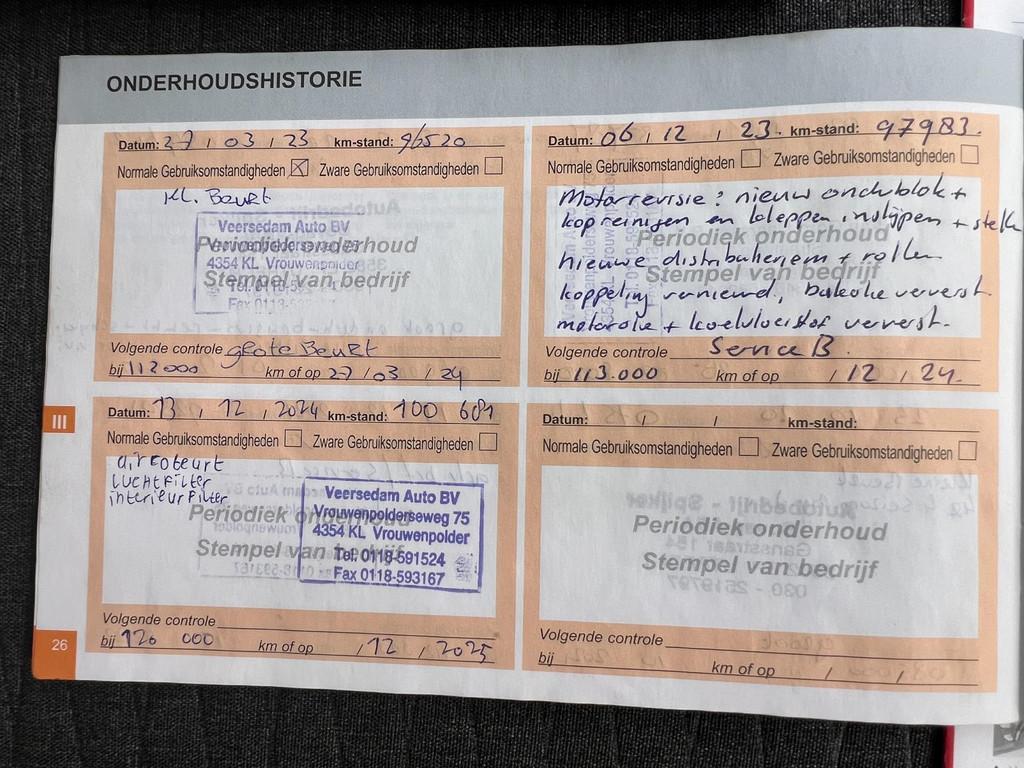 ONDERHOUDSHISTORIE
Datum: 27 / 03 / 23 km-stand: 96520
Normale Gebruiksomstandigheden Zware Gebruiksomstandigheden
Kl. Beurt
Veersedam Auto BV
Periodiek onderhoud
4354 KL Vrouwenpolder
Stempel van bedrijf
Volgende controle grote Beurt
bij 112000 km of op 27/03 / 24
Datum: 06 / 12 / 23. km-stand: 97983.
Normale Gebruiksomstandigheden Zware Gebruiksomstandigheden
Motorrevisie: nieuw onderblok +
kop reinigen en kleppen inslijpen +
Periodiek onderhoud
nieuwe distributieriem + rollen
Stempel van bedrijf
koppeling vernieuwd, ververst
motorolie + koelvloeistof ververst.
Volgende controle Service B.
bij 113.000 km of op / 12 / 24.
III
Datum: 13 / 12 / 2024 km-stand: 100 681
Normale Gebruiksomstandigheden Zware Gebruiksomstandigheden
airco beurt
LUCHTFILTER
interieurFilter
Periodiek onderhoud
Stempel van bedrijf
Veersedam Auto BV
Vrouwenpolderseweg 75
4354 KL Vrouwenpolder
Tel. 0118-591524
Fax 0118-593167
Volgende controle
bij 120 000 km of op / 12 / 2025
Datum: / / km-stand:
Normale Gebruiksomstandigheden Zware Gebruiksomstandigheden
Periodiek onderhoud
Stempel van bedrijf
Volgende controle
bij km of op / /
26